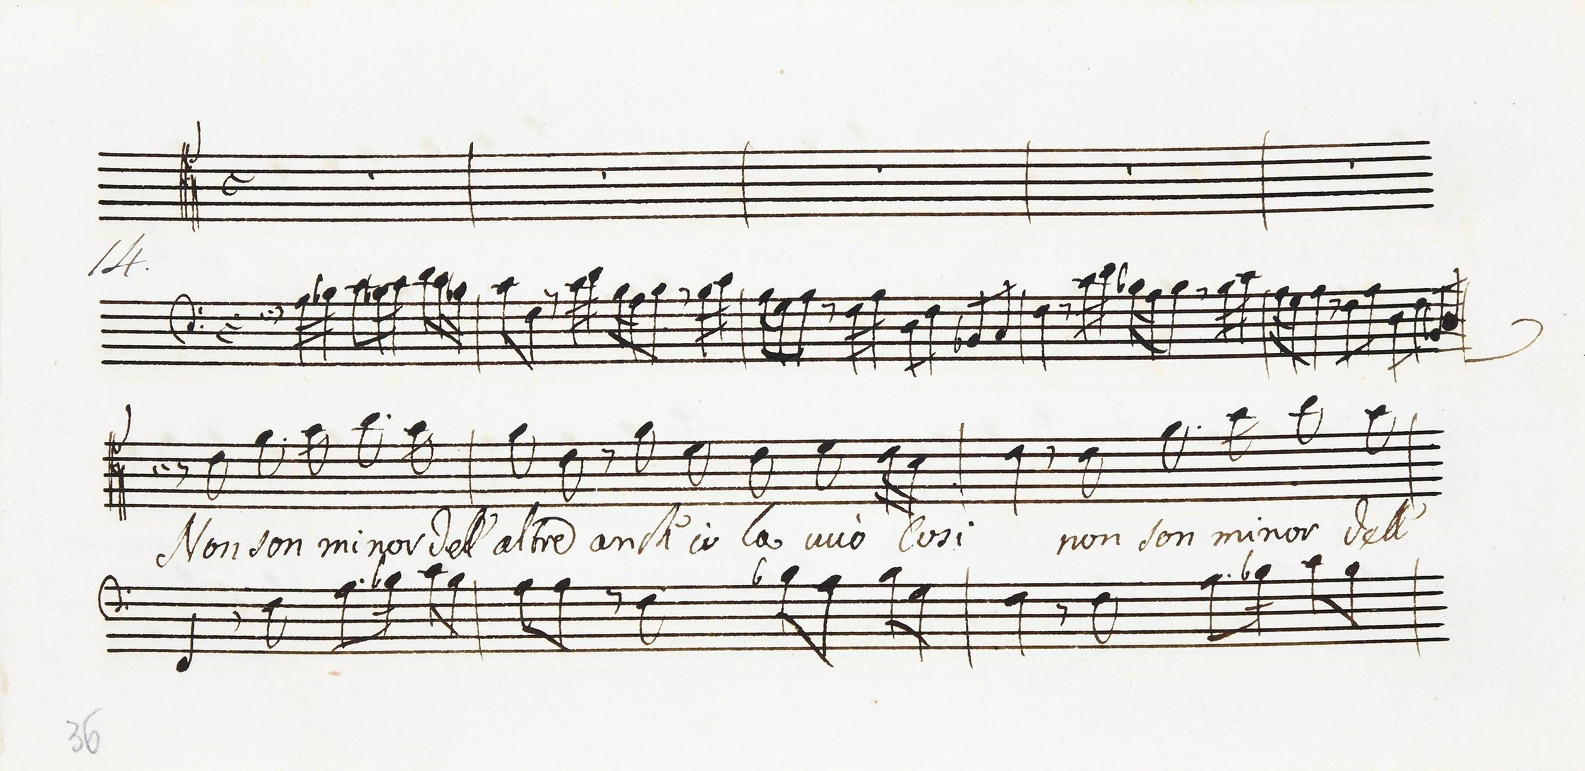 14.
Non son minor dell' altre anch' io la vuò Cosi non son minor dell'
36